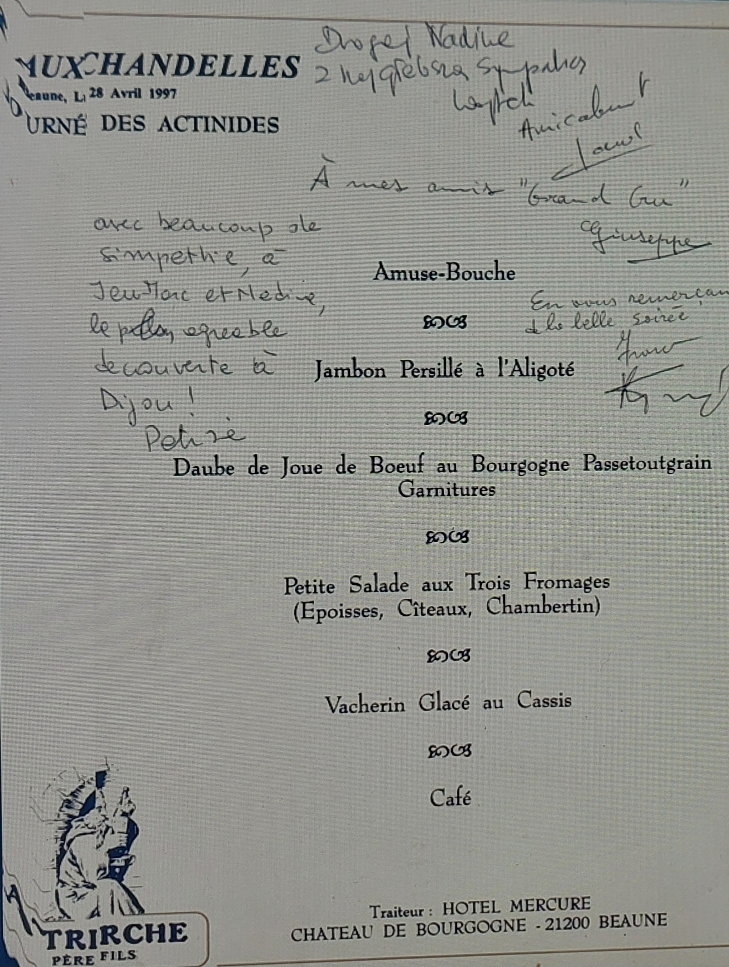 AUX CHANDELLES
Beaune, Le 28 Avril 1997
URNÉ DES ACTINIDES
Nadine
2
Amicalement
À mes amis "Grand Cru"
Giuseppe
avec beaucoup de
simpethie, à
Jeu Marc et Nedine,
le agreable
decouverte à
Dijou !
En vous remerçan
d la belle soirée
Amuse-Bouche
Jambon Persillé à l'Aligoté
Daube de Joue de Boeuf au Bourgogne Passetoutgrain
Garnitures
Petite Salade aux Trois Fromages
(Epoisses, Cîteaux, Chambertin)
Vacherin Glacé au Cassis
Café
TRIRCHE
PÈRE FILS
Traiteur : HOTEL MERCURE
CHATEAU DE BOURGOGNE - 21200 BEAUNE